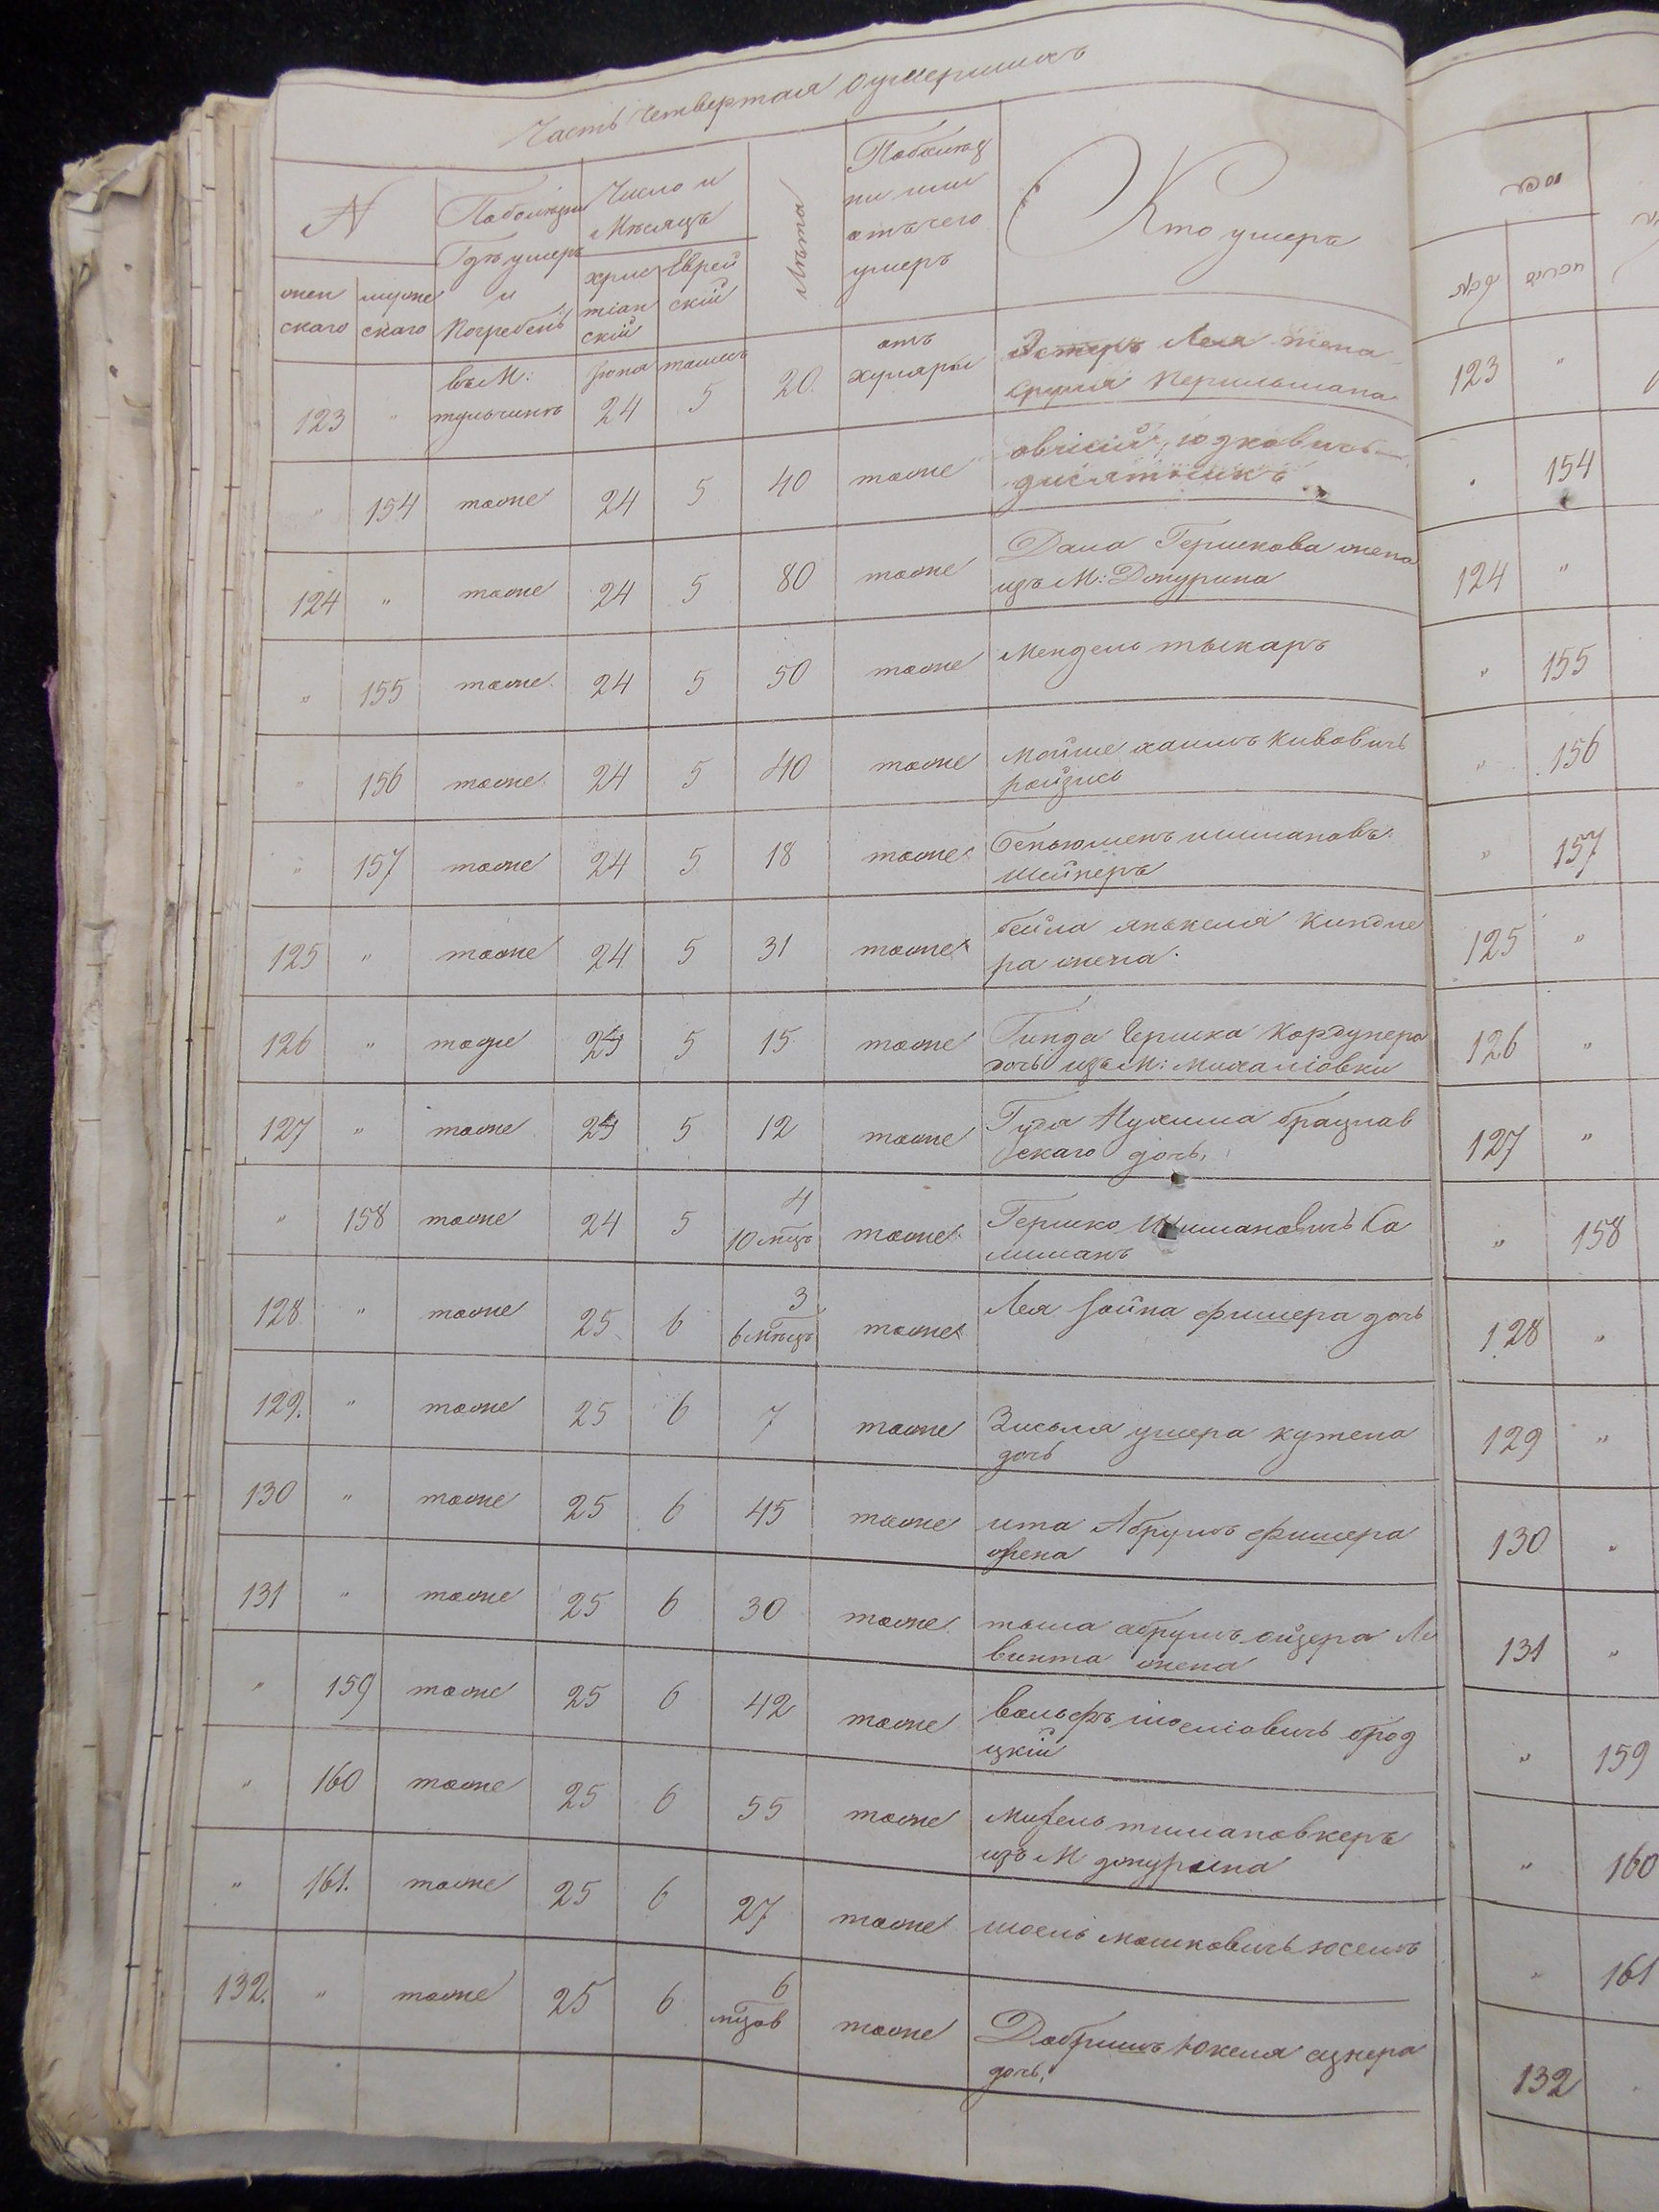 Часть четвертая о умершихъ
N
женскаго
мужескаго
Гдѣ умеръ и Погребенъ
Число и Мѣсяцъ
христіанскій
Еврейскій
Лѣта
отъ чего умеръ
Кто умеръ
123 " въ М: тульчинѣ Іюня 24 5 20 отъ холяры Эстеръ Лея жена
сруля Перильмана
" 154 тоже 24 5 40 тоже юдковичъ
дисятникъ
124 " тоже 24 5 80 тоже Гершкова жена
изъ М:
" 155 тоже 24 5 50 тоже Мендель ткаръ
" 156 тоже 24 5 40 тоже Мойше хаимъ Кивовичъ
ройзисъ
" 157 тоже 24 5 18 тоже Беньюменъ шимановъ
Шейнеръ
125 " тоже 24 5 31 тоже бейла янькеля Киндне
ра жена.
126 " тоже 24 5 15 тоже Гинда Гершка Кордунера
дочь изъ М: Михаліовки
127 " тоже 24 5 12 тоже Нухима брацлав
скаго дочь,
" 158 тоже 24 5 4 10 мцъ тоже Гершко Шимановичъ Ка
лиманъ
128 " тоже 25 6 3 6 мѣцъ тоже Лея Іойна фишера дочь
129. " тоже 25 6 7 тоже Зисьля ушера кутена
дочь
130 " тоже 25 6 45 тоже ита Абрумъ фишера
жена
131 " тоже 25 6 30 тоже абрумъ ойзера Ле
винта жена
" 159 тоже 25 6 42 тоже вольфъ шоеліовичъ брод
цкій
" 160 тоже 25 6 55 тоже тишановкеръ
изъ М
" 161. тоже 25 6 27 тоже шоель мошковичъ
132. " тоже 25 6 6 мцов тоже Добришъ Юкеля ацнера
дочь,
123 "
" 154
124 "
" 155
" 156
" 157
125 "
126 "
127 "
" 158
128 "
129 "
130 "
131 "
" 159
" 160
" 161
132